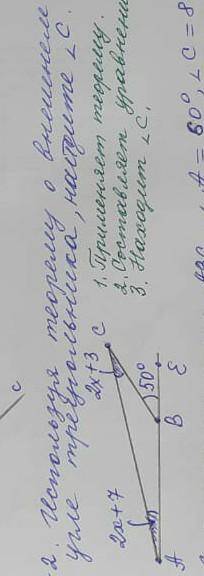 C
2. Используя теорему о внешнем
угле треугольника, найдите ∠C.
1. Применяет теорему.
2. Составляет уравнени
3. Находит ∠C.
2x+7
2x+3
C
50°
A
B
E
A = 60°, ∠C = 8